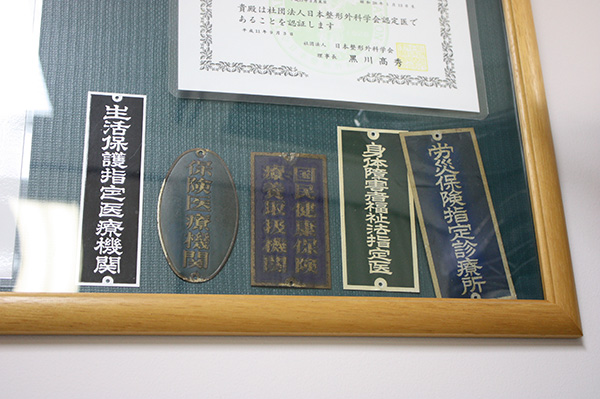 貴殿は社団法人日本整形外科学会認定医で
あることを認証します
社団法人 日本整形外科学会
理事長 黒川高秀
生活保護指定医療機関
保険医療機関
国民健康保険
療養取扱機関
身体障害者福祉法指定医
労災保険指定診療所